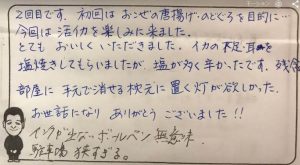 2回目です。初回はおこぜの唐揚げ・のどぐろを目的に…
今回は活イカを楽しみに来ました。
とてもおいしくいただきました。イカの足・耳を
塩焼きしてもらいましたが、塩が多く辛かったです。残念
部屋に手元で消せる枕元に置く灯が欲しかった。
お世話になりありがとうございました!!
インクが出ないボールペン無意味
駐車場狭すぎる。